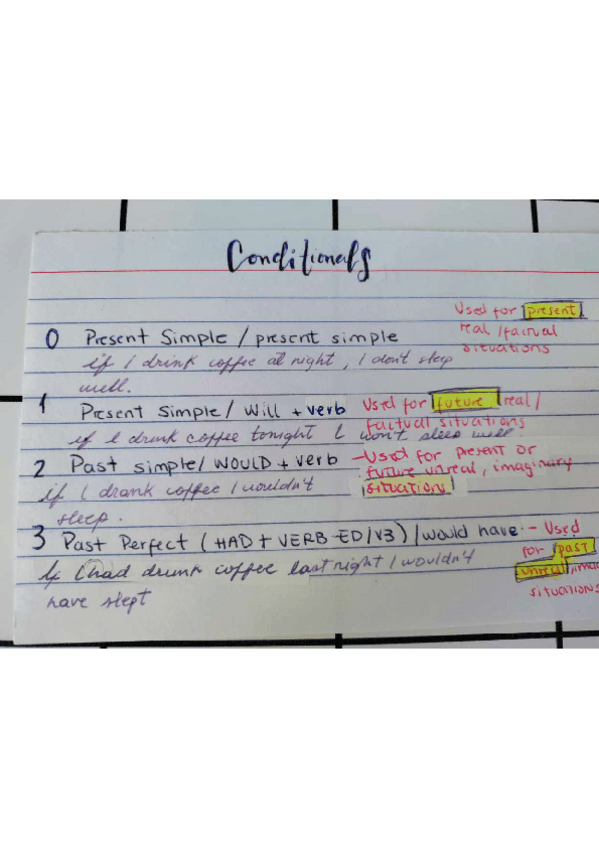 Conditionals
Used for present
0 Present Simple / present simple real / factual
situations
if I drink coffee at night, I don't sleep
well.
1 Present Simple / Will + verb Used for future real /
factual situations
if I drink coffee tonight I won't sleep well.
2 Past simple / WOULD + verb - Used for present or
future unreal, imaginary
if I drank coffee I wouldn't situation
sleep.
3 Past Perfect (HAD + VERB-ED/V3) / would have - Used
for past
If I had drunk coffee last night I wouldn't unreal
have slept situations